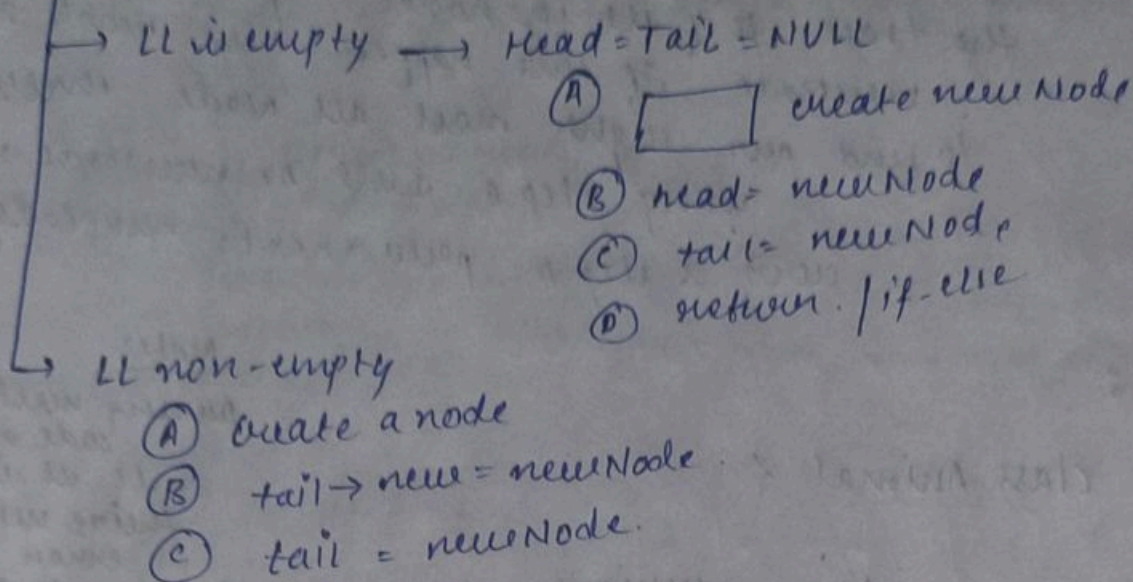 → LL is empty → Head = Tail = NULL
Ⓐ create new Node
Ⓑ head = newNode
Ⓒ tail = newNode
Ⓓ return. / if-else
↳ LL non-empty
Ⓐ create a node
Ⓑ tail → new = newNode.
Ⓒ tail = newNode.